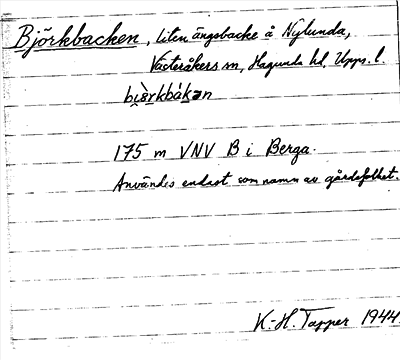 Björkbacken, liten ängsbacke å Nylunda,
Västeråkers sn, Hagunda hd, Upps. l.
bi̯ö̀rkbákən
175 m VNV B i Berga.
Användes endast som namn av gårdsfolket.
K.-H. Tapper 1944